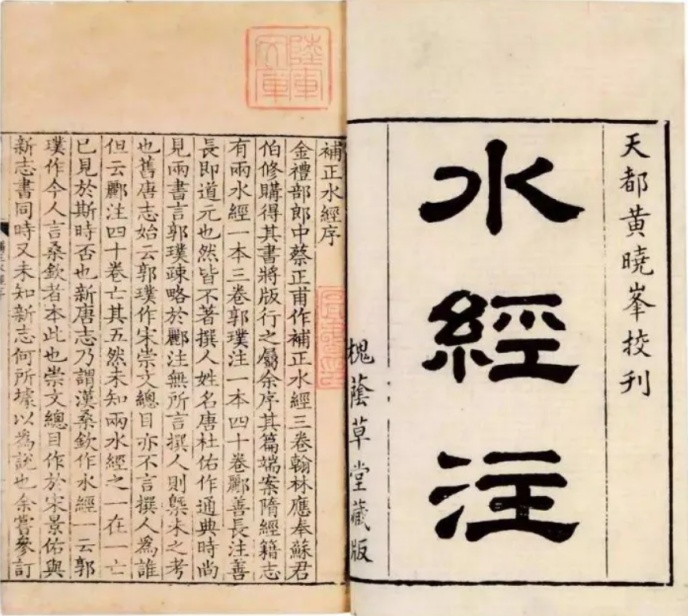 天都黃曉峯挍刊
水經注
槐蔭草堂藏版
陸軍文庫
補正水經序
金禮部郎中蔡正甫作補正水經三卷翰林應奉蘇君
伯修購得其書將版行之屬余序其篇端案隋經籍志
有兩水經一本三卷郭璞注一本四十卷酈善長注善
長即道元也然皆不著撰人姓名唐杜佑作通典時尚
見兩書言郭璞疎略於酈注無所言撰人則槩未之考
也舊唐志始云郭璞作宋崇文總目亦不言撰人為誰
但云酈注四十卷亡其五然未知兩水經之一在一亡
已見於斯時否也新唐志乃謂漢桑欽作水經一云郭
璞作今人言桑欽者本此也崇文總目作於宋景佑與
新志書同時又未知新志何所據以為說也余嘗參訂